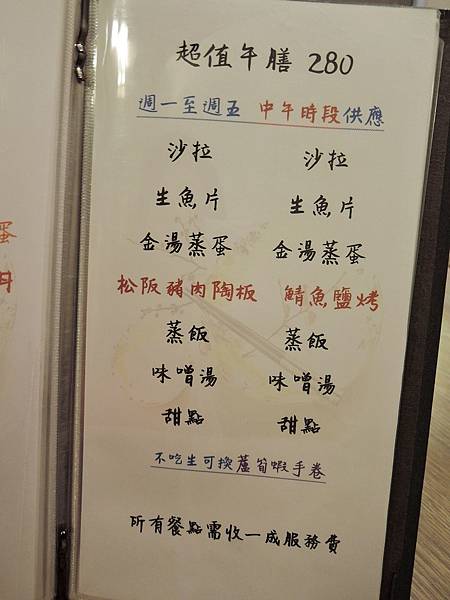 超值午膳 280
週一至週五 中午時段供應
沙拉 沙拉
生魚片 生魚片
金湯蒸蛋 金湯蒸蛋
松阪豬肉陶板 鯖魚鹽烤
蒸飯 蒸飯
味噌湯 味噌湯
甜點 甜點
不吃生可換蘆筍蝦手卷
所有餐點需收一成服務費
蛋